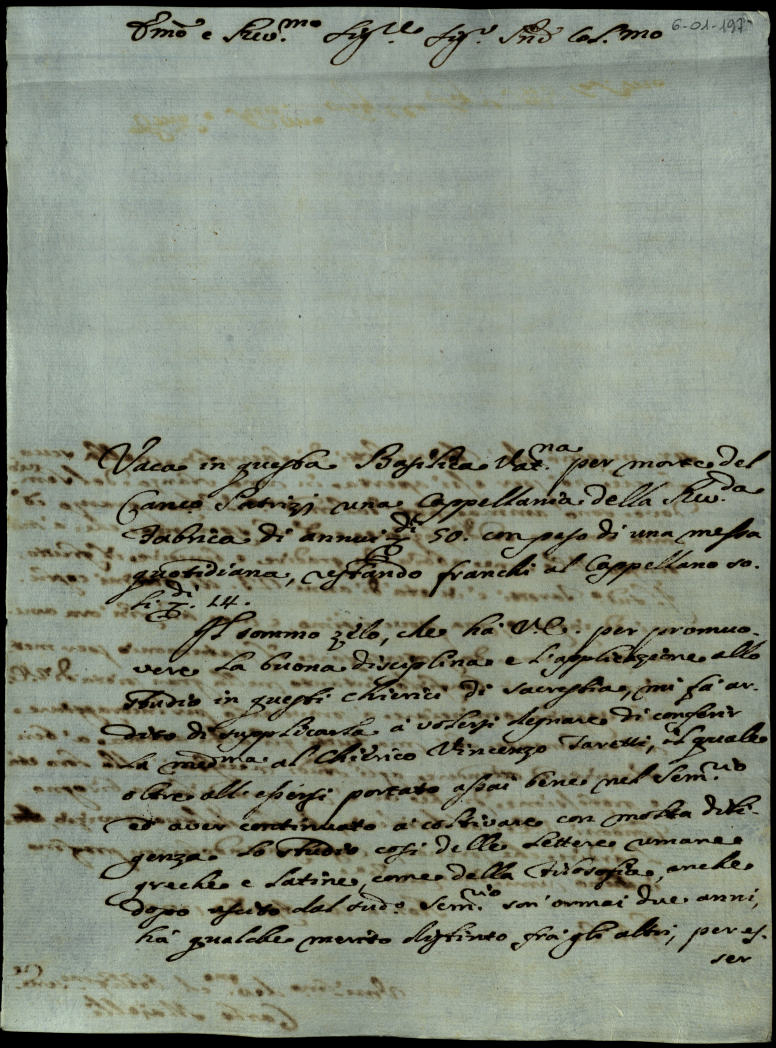 Em̃o e Rev.mo Sig.re Sig.r Pñe Col.mo
6-01-197
Vaca in questa Basilica Vat.na per morte del
Can.co Patrizj una Cappellania della Rev.da
Fabrica di annui di 50. con peso di una messa
quotidiana, restando franchi al Cappellano so-
li di 14.
Il sommo zelo, che hà V.E. per promuo-
vere la buona disciplina e l'applicazione allo
studio in questi chierici di sacrestia, mi fà ar-
dito di supplicarla à volersi degnare di conferir
la med.ma al Chierico Vincenzo Taretti, il quale
oltre all'essersi portato assai bene nel Sem.rio
ed aver continuato à coltivare con molta dili-
genza lo studio così delle lettere umane
greche e latine, come della Filosofia, anche
dopo uscito dal sud.o Sem.rio son'ormai due anni,
hà qualche merito distinto frà gli altri, per es-
ser